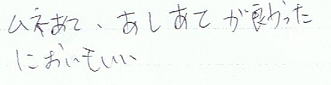 ムネあて、あしあてが良かった
においもいい